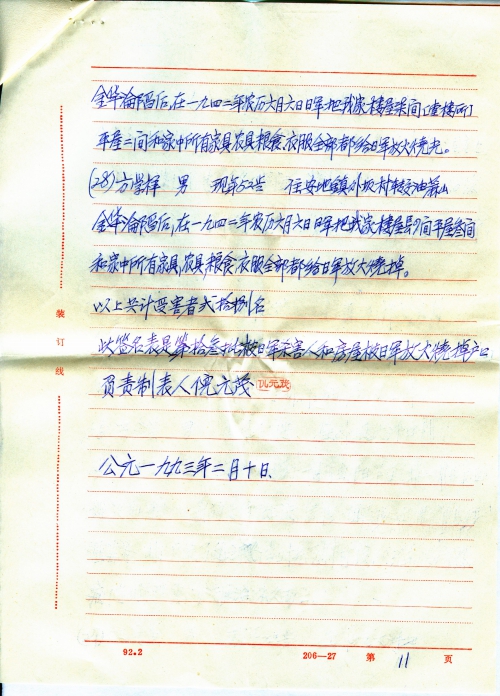 金华沦陷后,在一九四二年农历六月六日日军把我家楼屋柒间(查楼所)
平屋二间和家中所有家具农具粮食、衣服全部都给日军放火烧光。
(28)方学样 男 现年52岁 住安地镇外坂村转交油菁山
金华沦陷后,在一九四二年农历六月六日日军把我家楼屋 间平屋叁间
和家中所有家具,农具,粮食、衣服全部都给日军放火烧掉。
以上共计受害者弍拾捌名
此签名表是第拾叁批被日军杀害人和房屋被日军放火烧掉户口
负责制表人倪元茂 倪元茂
公元一九九三年二月十日
装订线
92.2 206—27 第 11 页